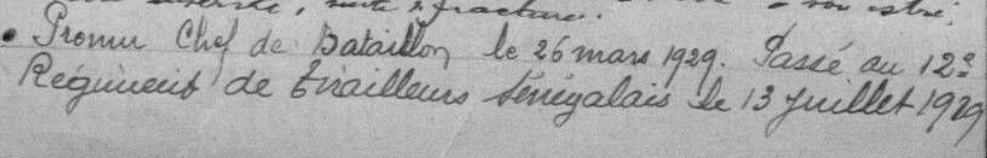 suite à fracture.
• Promu Chef de Bataillon le 26 mars 1929. Passé au 12e
Régiment de tirailleurs Sénégalais le 13 Juillet 1929